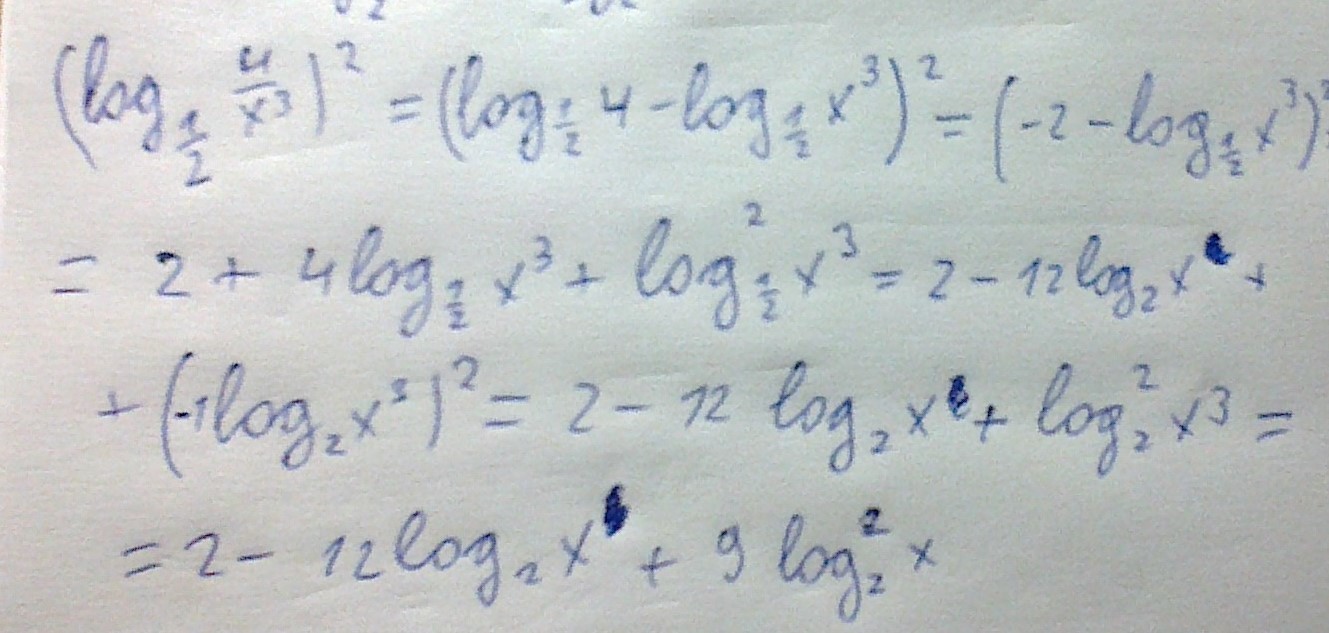 (log_{1/2} 4/x³)² = (log_{1/2} 4 - log_{1/2} x³)² = (-2 - log_{1/2} x³)²
= 2 + 4 log_{1/2} x³ + log²_{1/2} x³ = 2 - 12 log₂ x +
+ (-1 log₂ x³)² = 2 - 12 log₂ x + log₂² x³ =
= 2 - 12 log₂ x + 9 log₂² x